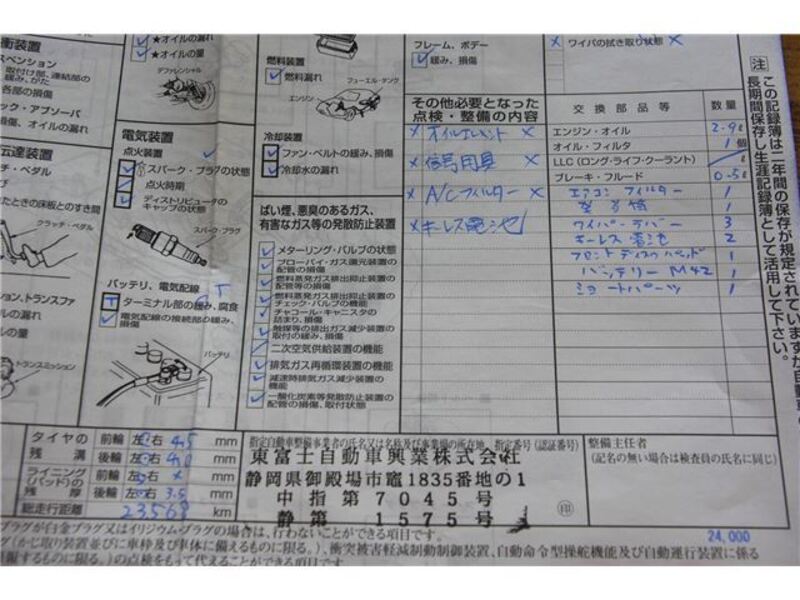 衝装置
スペンション
取付部、連結部の
緩み、がた
各部の損傷
ック・アブソーバ
損傷、オイルの漏れ
伝達装置
ラッチ・ペダル
たときの床板とのすき間
クラッチ・ペダル
ション、トランスファ
ルの漏れ
ルの量
トランスミッション
★オイルの漏れ
★オイルの量
デファレンシャル
電気装置
点火装置
スパーク・プラグの状態
点火時期
ディストリビュータの
キャップの状態
スパーク・プラグ
バッテリ、電気配線
T
ターミナル部の緩み、腐食
電気配線の接続部の緩み、
損傷
バッテリ
燃料装置
燃料漏れ
フューエル・タンク
エンジン
冷却装置
ファン・ベルトの緩み、損傷
冷却水の漏れ
ばい煙、悪臭のあるガス、
有害なガス等の発散防止装置
メターリング・バルブの状態
ブローバイ・ガス還元装置の
配管の損傷
燃料蒸発ガス排出抑止装置の
配管等の損傷
燃料蒸発ガス排出抑止装置の
チェック・バルブの機能
チャコール・キャニスタの
詰まり、損傷
触媒等の排出ガス減少装置の
取付の緩み、損傷
二次空気供給装置の機能
排気ガス再循環装置の機能
減速時排気ガス減少装置の
機能
一酸化炭素等発散防止装置の
配管の損傷、取付状態
フレーム、ボデー
緩み、損傷
その他必要となった
点検・整備の内容
× オイルエレメント ×
× 信号用具 ×
× A/Cフィルター ×
× キーレス電池
× ワイパの拭き取り状態 ×
交換部品等 数量
エンジン・オイル 2.9ℓ
オイル・フィルタ 1個
LLC(ロング・ライフ・クーラント) ℓ
ブレーキ・フルード 0.5ℓ
エアコン フィルター 1
発炎筒 1
ワイパーラバー 3
キーレス電池 2
フロントディスクパッド 1
バッテリー M42 1
ショートパーツ 1
注
この記録簿は二年間の保存が規定されていますが自動
長期間保存し生涯記録簿として活用して下さい。
タイヤの
残溝
前輪 左 右 4.5 mm
後輪 左 右 4.0 mm
ライニング
(パッド)の
残厚
前輪 左 右 × mm
後輪 左 右 3.5 mm
総走行距離 23568 km
指定自動車整備事業者の氏名又は名称及び事業場の所在地、指定番号(認証番号)
東富士自動車興業株式会社
静岡県御殿場市竈1835番地の1
中指第7045号
静第1575号
印
整備主任者
(記名の無い場合は検査員の氏名に同じ)
24,000
プラグが白金プラグ又はイリジウム・プラグの場合は、行わないことができる項目です。
グ(かじ取り装置並びに車枠及び車体に備えるものに限る。)、衝突被害軽減制動制御装置、自動命令型操舵機能及び自動運行装置に係る
るものに限る。)の点検をもって代えることができる項目です。